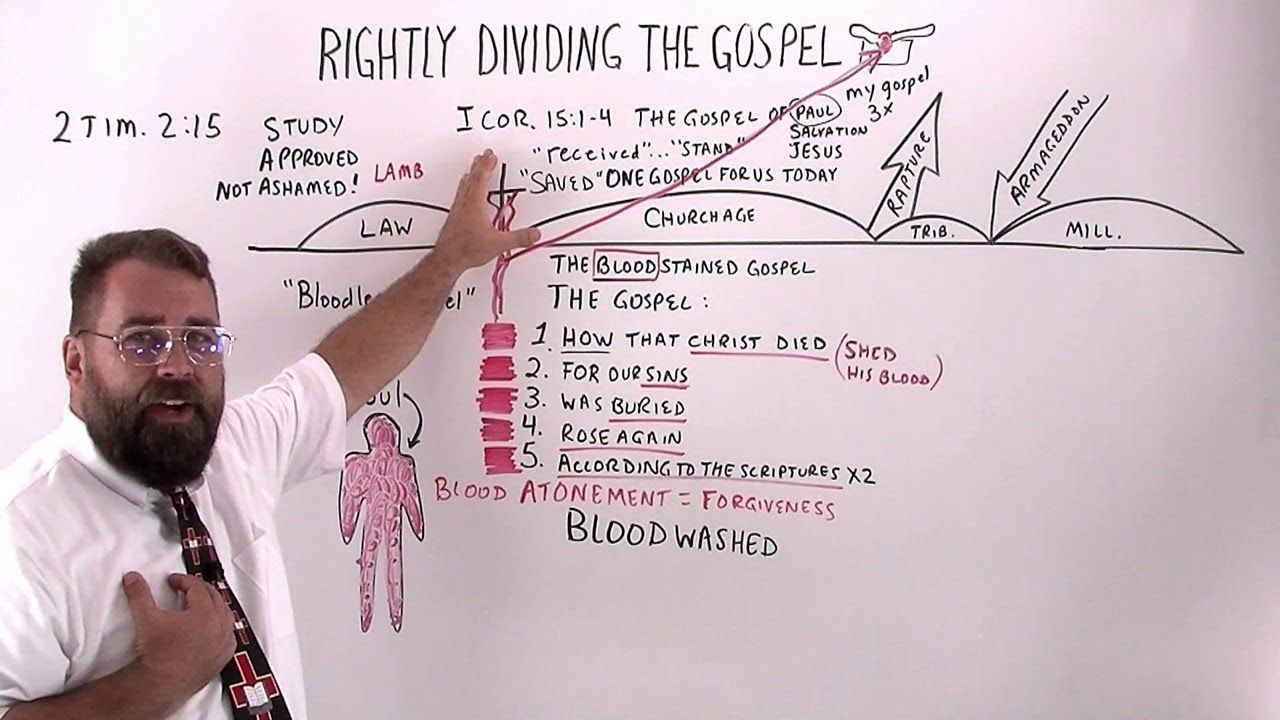 RIGHTLY DIVIDING THE GOSPEL
2 TIM. 2:15
STUDY
APPROVED
NOT ASHAMED!
LAMB
I COR. 15:1-4 THE GOSPEL OF PAUL
my gospel
3x
SALVATION
JESUS
"received"... "STAND"
"SAVED" ONE GOSPEL FOR US TODAY
LAW
CHURCHAGE
RAPTURE
TRIB.
ARMAGEDDON
MILL.
THE BLOOD STAINED GOSPEL
THE GOSPEL:
1. HOW THAT CHRIST DIED (SHED
HIS BLOOD)
2. FOR OUR SINS
3. WAS BURIED
4. ROSE AGAIN
5. ACCORDING TO THE SCRIPTURES X2
BLOOD ATONEMENT = FORGIVENESS
BLOOD WASHED